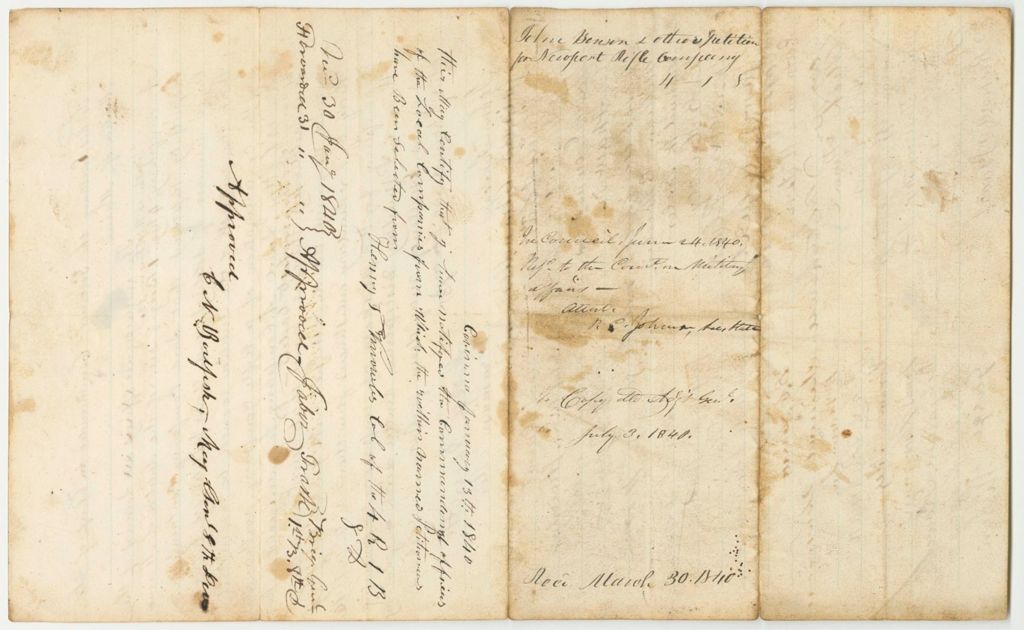 John Benson & others Petition
for Newport Rifle Company
4 – 1 8
In Council, June 24. 1840.
Ref. to the Com. on Military
affairs —
Attest.
Johnson, Sec. State
Copy Adjt Genl.
July 3. 1840.
Rec'd March 30. 1840
Corinna January 13th 1840
This May Certify that I have notifyed the Commanding officers
of the Local Companies from which the within named Petitioners
have Been Selected from
Henry Knowles Col of the 4 R 1 B
8 D
Rec'd 30 Jany 1840
Forwarded 31 " " } Approved Jabez Trask Brig. Genl
1st B. 8th D
Approved
Maj Genl 8th Div